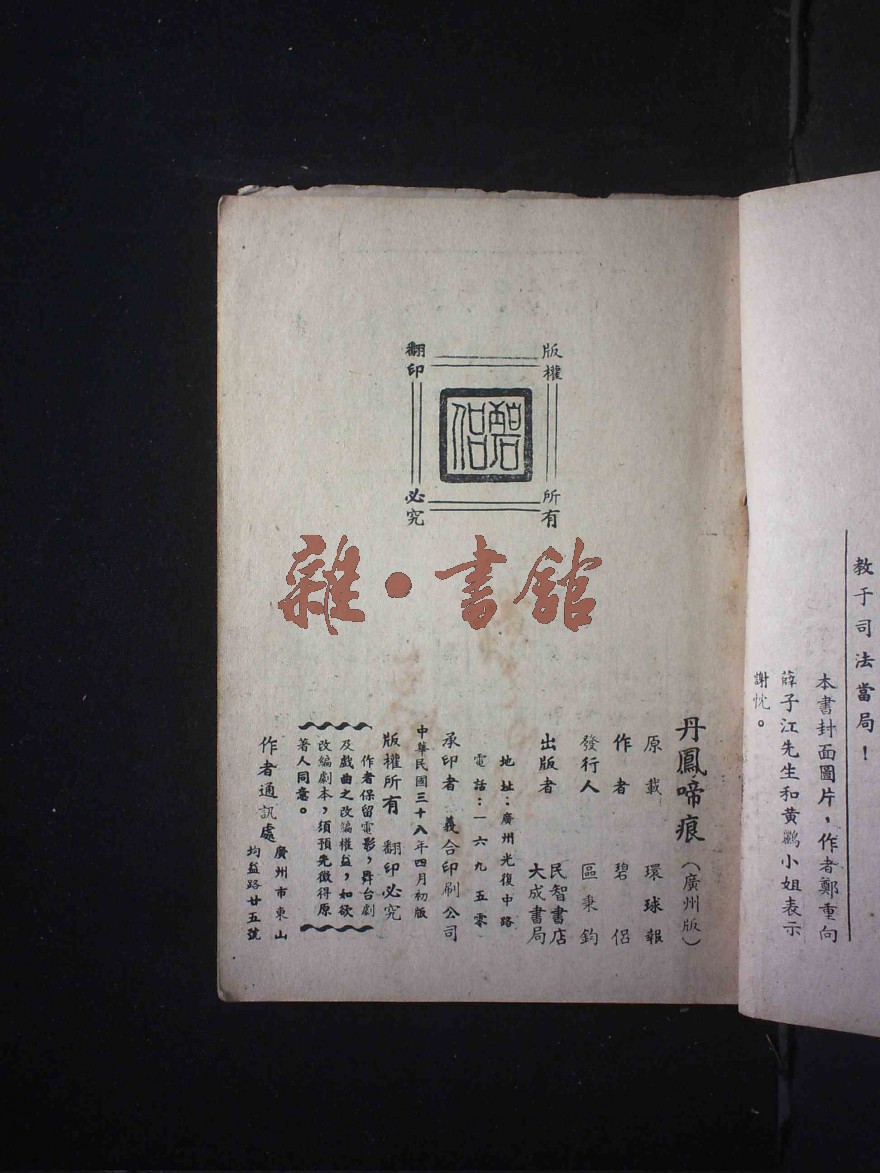 教于司法當局！
本書封面圖片，作者鄭重向
薛子江先生和黄鸝小姐表示
謝忱。
版權
所有
翻印
必究
碧侶
雜·書館
丹鳳啼痕（廣州版）
原載 環球報
作者 碧侶
發行人 區秉鈞
出版者 民智書店
大成書局
地址：廣州光復中路
電話：一六九五零
承印者 義合印刷公司
中華民國三十八年四月初版
版權所有 翻印必究
作者保留電影，舞台劇
及戲曲之改編權益，如欲
改編劇本，須預先徵得原
著人同意。
作者通訊處 廣州市東山
均益路廿五號